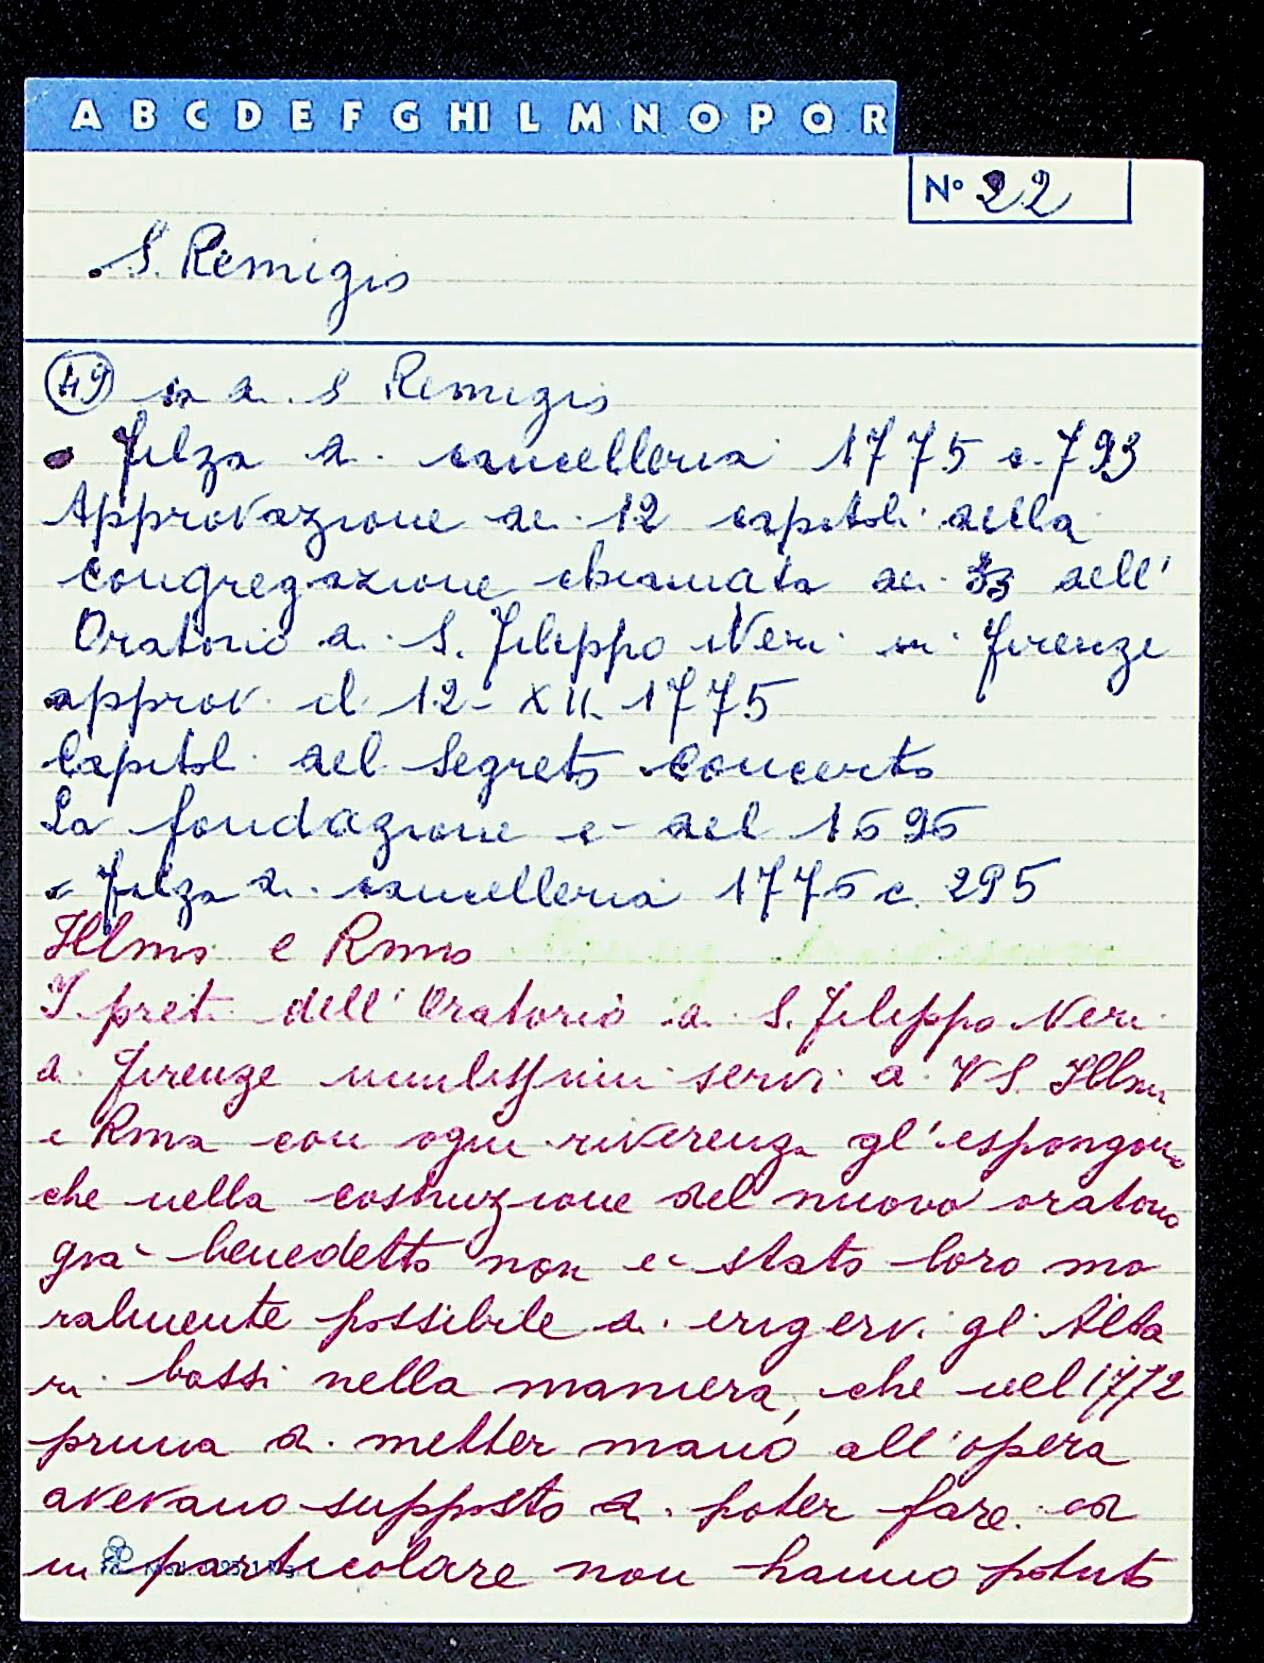 A B C D E F G HI L M N O P Q R
Nº 22
S. Remigio
49 a di S Remigio
Filza di cancelleria 1775 c. 793
Approvazione dei 12 capitoli della
congregazione chiamata dei 33 dell'
Oratorio di S. Filippo Neri in Firenze
approv. il 12 - XII. 1775
Capitoli del Segreto Concerto
La fondazione è del 1695
Filza di cancelleria 1775 c. 295
Illmo e Rmo
I preti dell'Oratorio di S. Filippo Neri
di Firenze umilissimi servi di VS. Illma
e Rma con ogni riverenza gl'espongono
che nella costruzione del nuovo oratorio
già benedetto non è stato loro mo
ralmente possibile di erigervi gl'Alta
ri bassi nella maniera, che nel 1772
prima di metter mano all'opera
avevano supposto di poter fare. ed
in particolare non hanno potuto